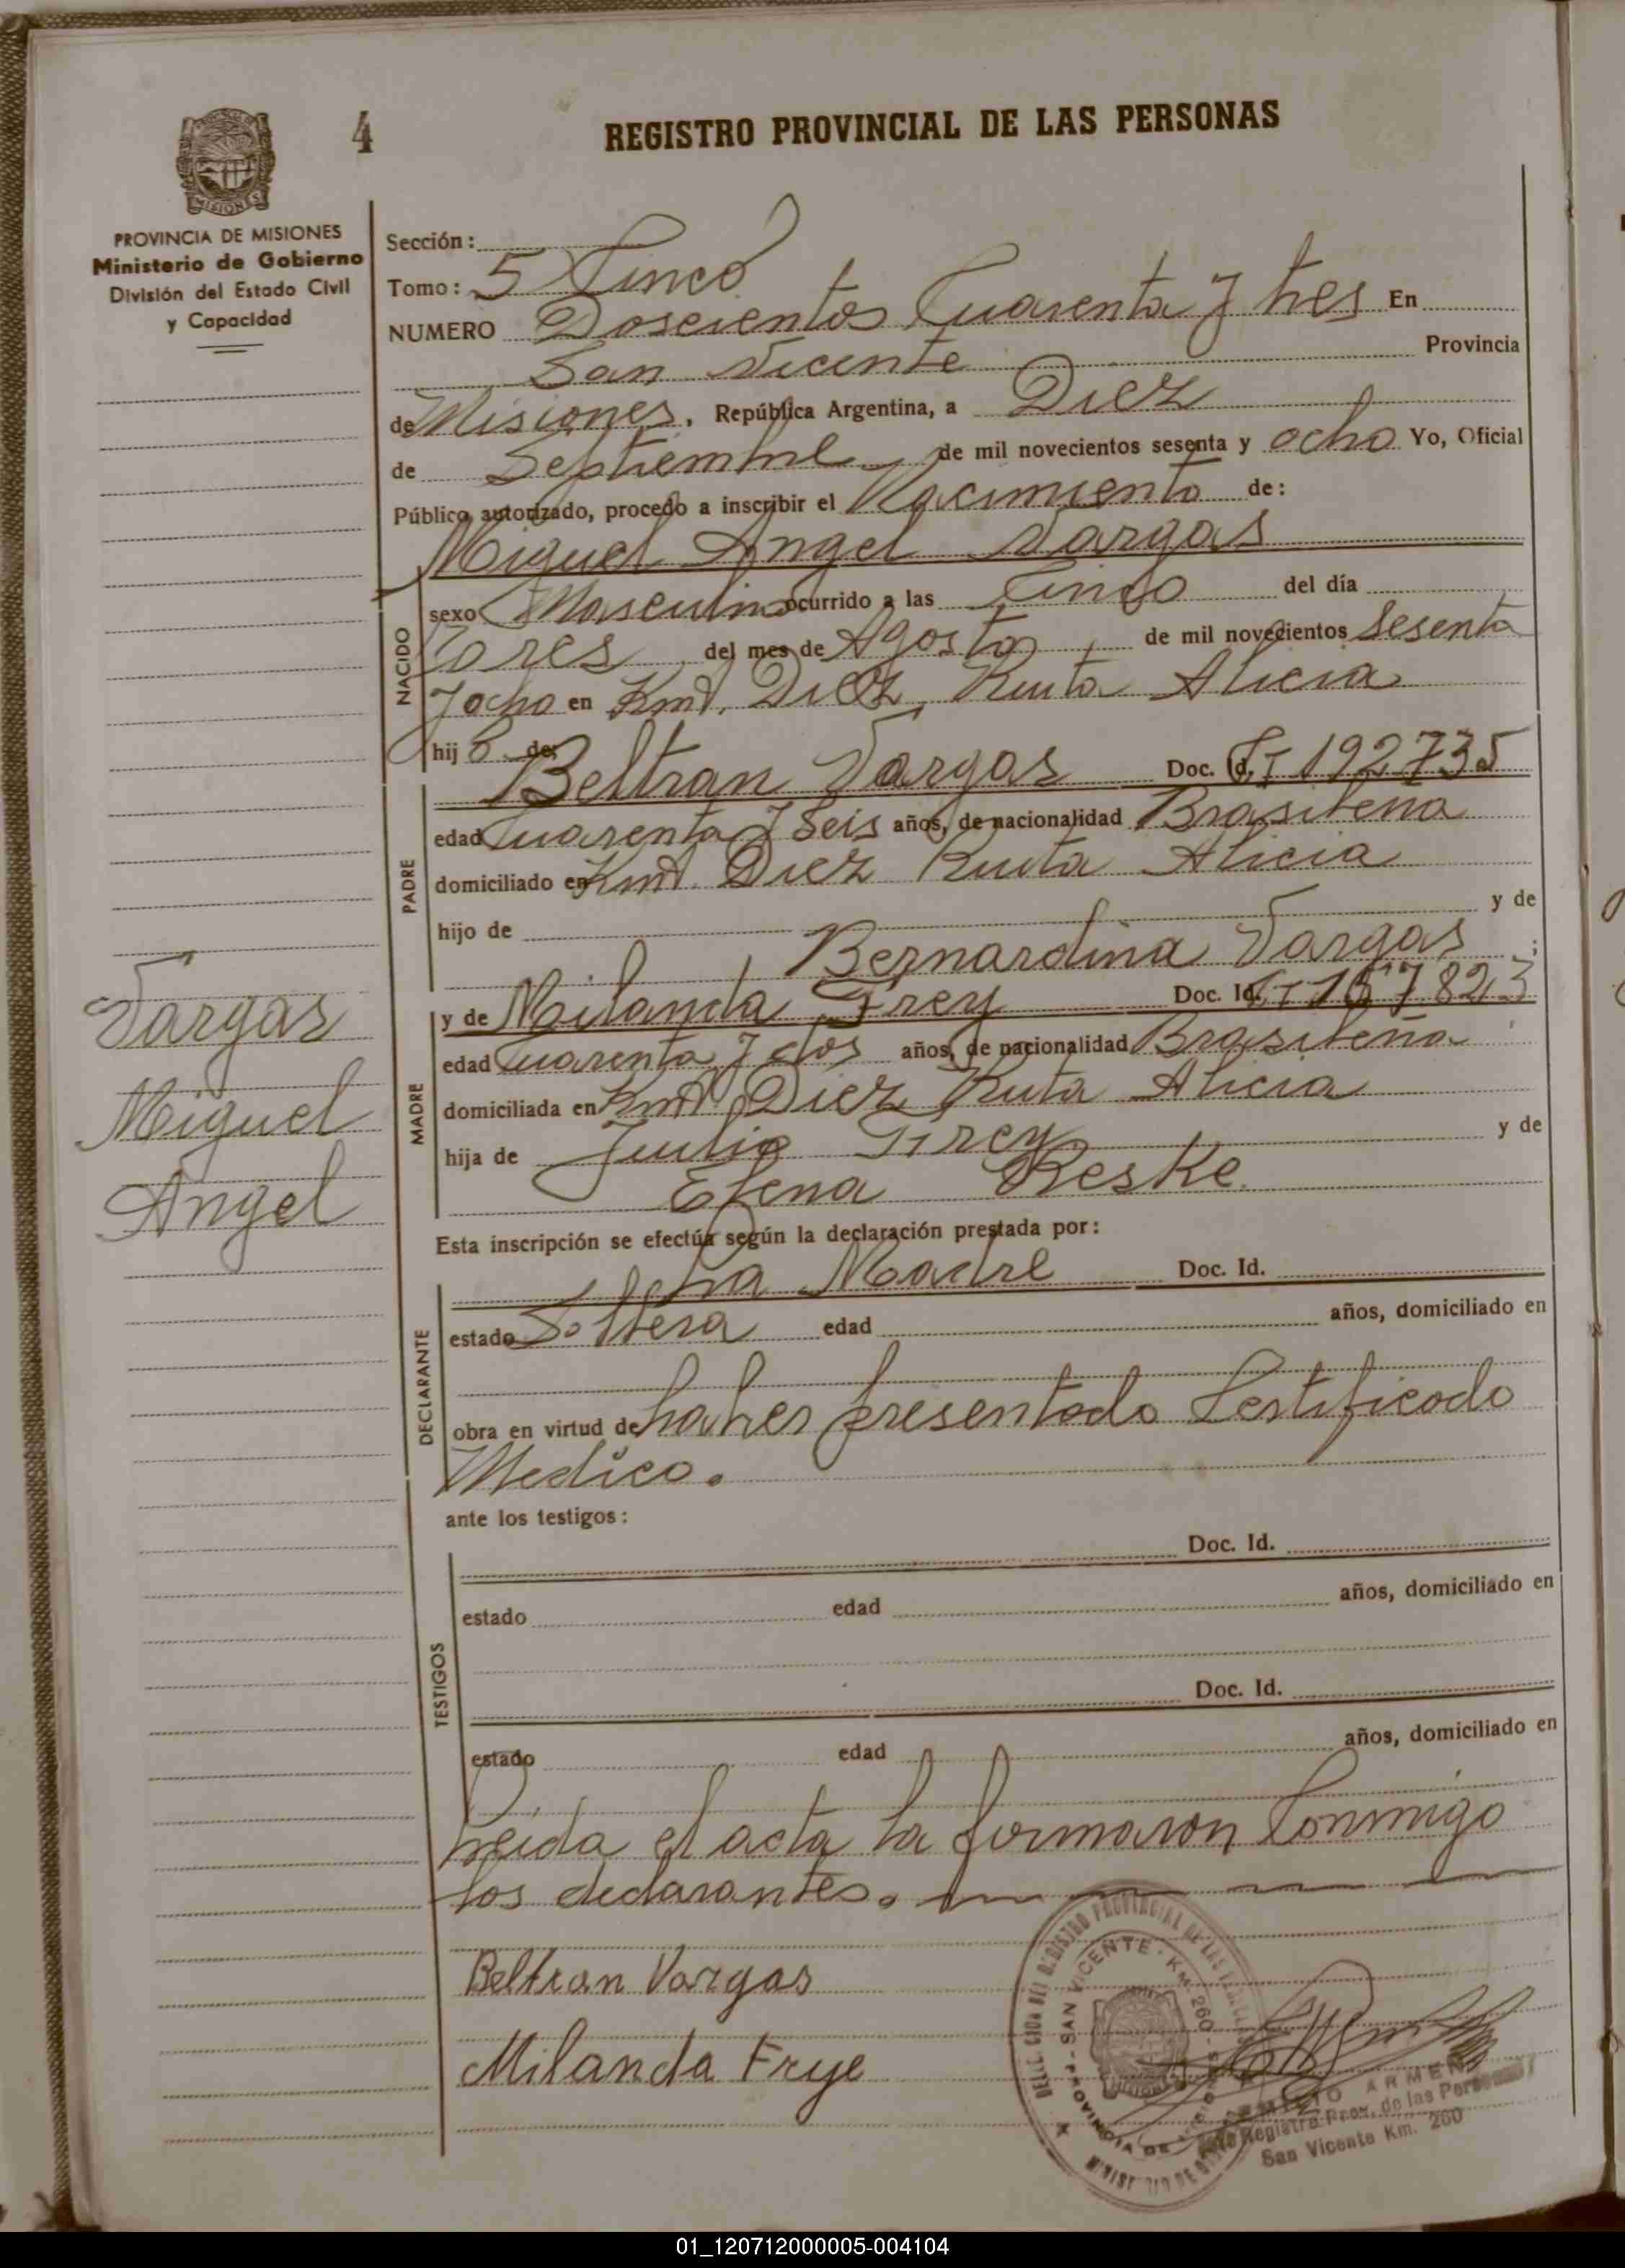 4
REGISTRO PROVINCIAL DE LAS PERSONAS
MISIONES
PROVINCIA DE MISIONES
Ministerio de Gobierno
División del Estado Civil
y Capacidad
Sección:
Tomo: 5 Cinco
NUMERO Doscientos Cuarenta y tres En
San Vicente Provincia
de Misiones, República Argentina, a Diez
de Septiembre de mil novecientos sesenta y ocho Yo, Oficial
Público autorizado, procedo a inscribir el Nacimiento de:
Miguel Angel Vargas
NACIDO
sexo Masculino ocurrido a las Cinco del día
Tres del mes de Agosto de mil novecientos Sesenta
y ocho en Kmt. Diez Ruta Alicia
hij o de:
PADRE
Beltran Vargas Doc. Id. CI 192735
edad Cuarenta y Seis años, de nacionalidad Brasileña
domiciliado en Kmt. Diez Ruta Alicia
hijo de y de
Bernardina Vargas ;
MADRE
y de Milanda Frey Doc. Id. CI 167823
edad Cuarenta y dos años, de nacionalidad Brasileña
domiciliada en Kmt. Diez Ruta Alicia
hija de Julio Frey y de
Elena Reske.
Vargas
Miguel
Angel
Esta inscripción se efectúa según la declaración prestada por:
DECLARANTE
la Madre Doc. Id.
estado Soltera edad años, domiciliado en
obra en virtud de haber presentado Certificado
Medico.
ante los testigos:
TESTIGOS
Doc. Id.
estado edad años, domiciliado en
Doc. Id.
estado edad años, domiciliado en
Leida el acta la firmaron Conmigo
los declarantes.
Beltran Vargas
Milanda Frye
REGISTRO PROVINCIAL DE LAS
SAN VICENTE - KM. 260
PROVINCIA DE
Registro Prov. de las Personas
San Vicente Km. 260
01_120712000005-004104